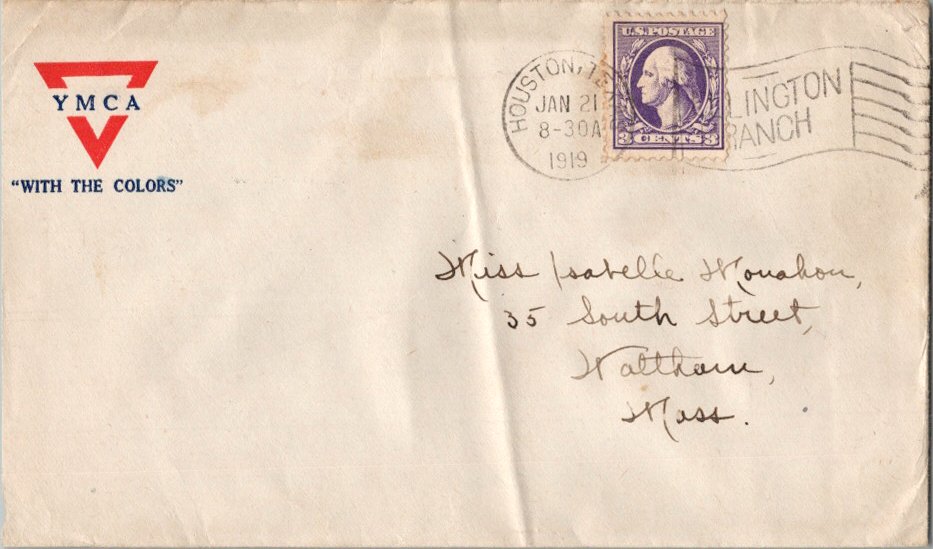 YMCA
"WITH THE COLORS"
U.S. POSTAGE
3 CENTS 3
HOUSTON, TE
JAN 21
8-30A
1919
LINGTON
RANCH
Miss Isabelle Monahon,
35 South Street,
Waltham,
Mass.